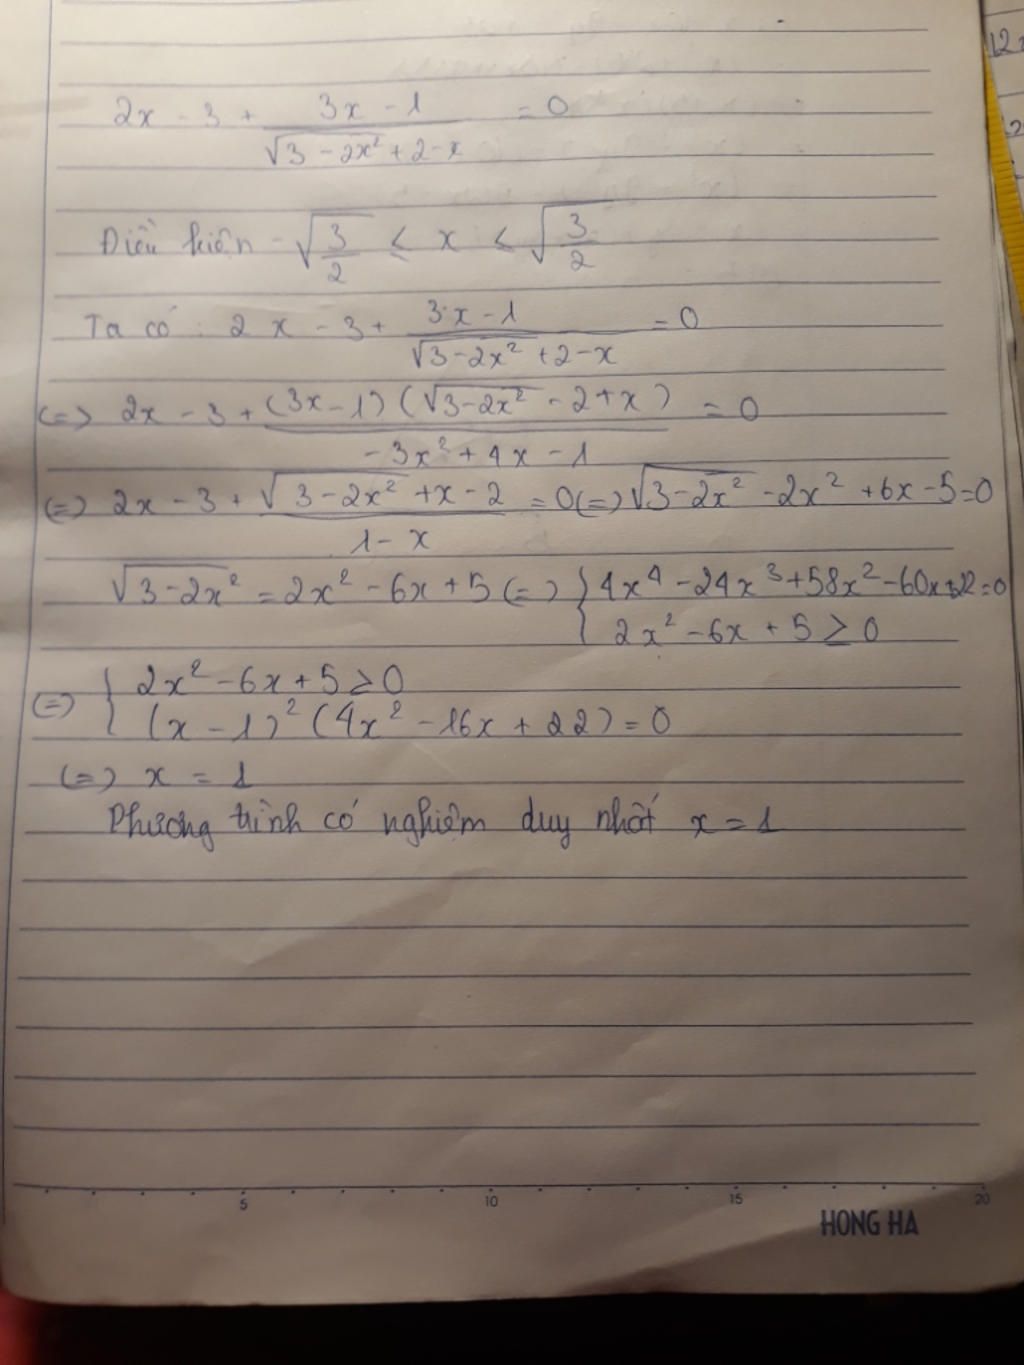 2x - 3 + \frac{3x - 1}{\sqrt{3 - 2x^2} + 2 - x} = 0
Điều kiện -\sqrt{\frac{3}{2}} ≤ x ≤ \sqrt{\frac{3}{2}}
Ta có : 2x - 3 + \frac{3x - 1}{\sqrt{3 - 2x^2} + 2 - x} = 0
(=) 2x - 3 + \frac{(3x - 1)(\sqrt{3 - 2x^2} - 2 + x)}{-3x^2 + 4x - 1} = 0
(=) 2x - 3 + \frac{\sqrt{3 - 2x^2} + x - 2}{1 - x} = 0 (=) \sqrt{3 - 2x^2} - 2x^2 + 6x - 5 = 0
\sqrt{3 - 2x^2} = 2x^2 - 6x + 5 (=) { 4x^4 - 24x^3 + 58x^2 - 60x + 22 = 0
2x^2 - 6x + 5 ≥ 0
(=) { 2x^2 - 6x + 5 ≥ 0
(x - 1)^2 (4x^2 - 16x + 22) = 0
(=) x = 1
Phương trình có nghiệm duy nhất x = 1
5 10 15 20
HONG HA